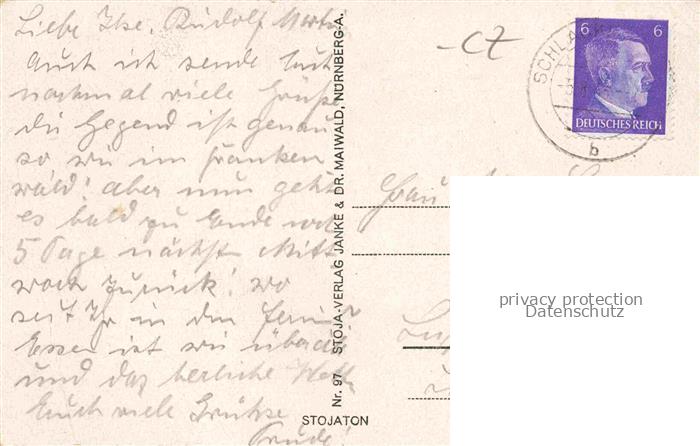 Liebe Ilse, Rudolf, Martin
Auch ich sende Euch
nochmal viele Grüße
die Gegend ist genau
so wie im Franken
wald! aber nun geht
es bald zu Ende noch
5 Tage nächst. Mitt
woch zurück! wo
seit Ihr in den Ferien?
Essen ist wie überall
und das herliche
Euch viele Grüße
Trude!
Nr. 97 STOJA-VERLAG JANKE & DR. MAIWALD, NÜRNBERG-A.
STOJATON
SCHLA
b
6 6
DEUTSCHES REICH
Frau
privacy protection
Datenschutz